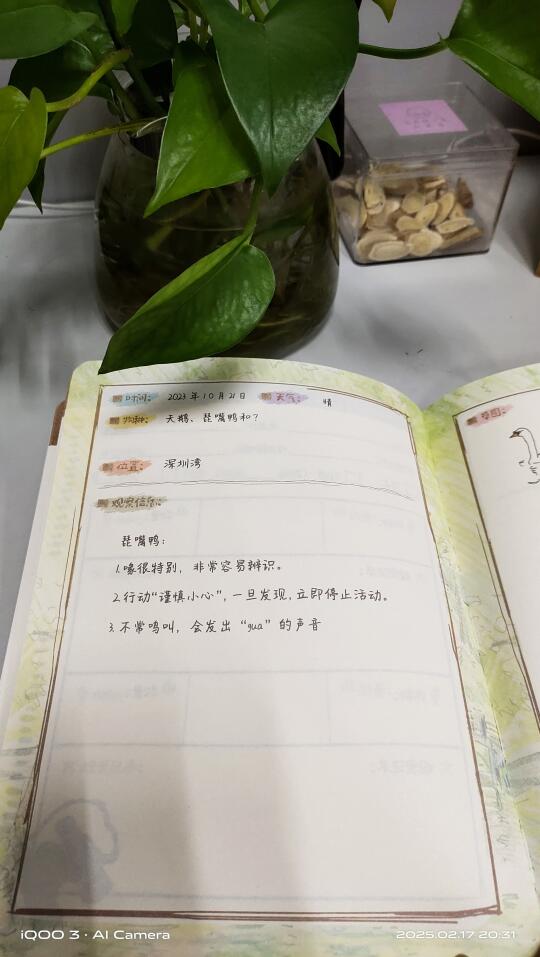 时间: 2023年10月21日 天气: 晴
物种: 天鹅、琵嘴鸭和?
位置: 深圳湾
观察信息:
琵嘴鸭:
1.喙很特别，非常容易辨识。
2.行动“谨慎小心”，一旦发现，立即停止活动。
3.不常鸣叫，会发出“gua”的声音
草图:
iQOO 3 · AI Camera
2025.02.17 20:31